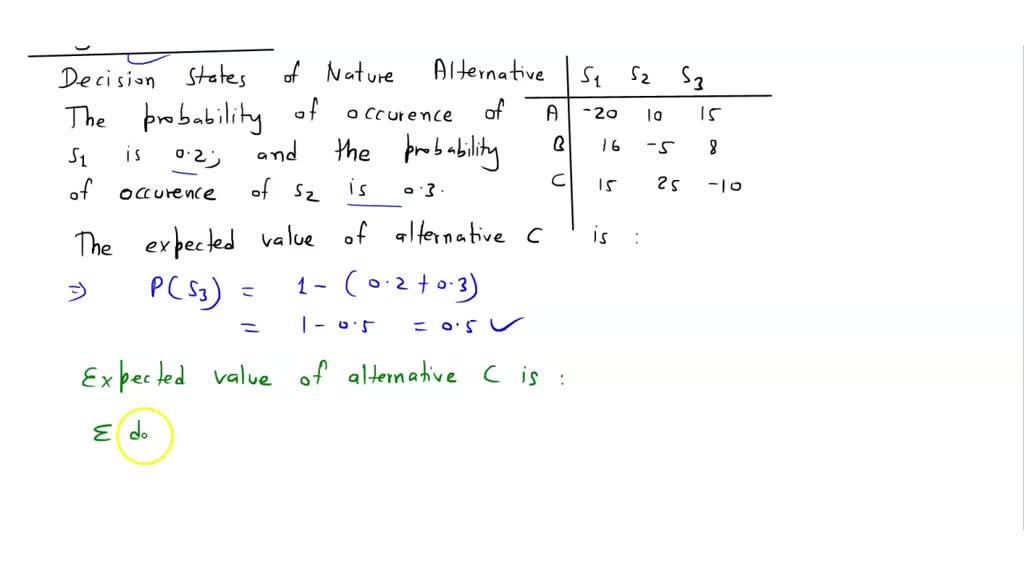 Decision States of Nature Alternative | S1 S2 S3
The probability of occurence of A | -20 10 15
S1 is 0.2; and the probability B | 16 -5 8
of occurence of S2 is 0.3. C | 15 25 -10
The expected value of alternative C is :
⇒ P(S3) = 1 - (0.2 + 0.3)
= 1 - 0.5 = 0.5 ✓
Expected value of alternative C is :
Σ do